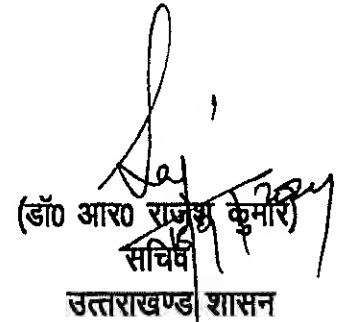 (डॉ0 आर0 राजेश कुमार)
सचिव
उत्तराखण्ड शासन